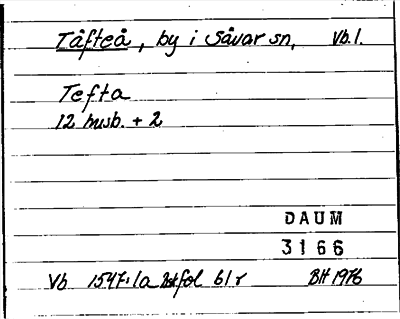 Täfteå, by i Sävar sn, Vb.l.
Tefta
12 husb. + 2
DAUM
3166
Vb 1547:1a fol 61 r BH 1976